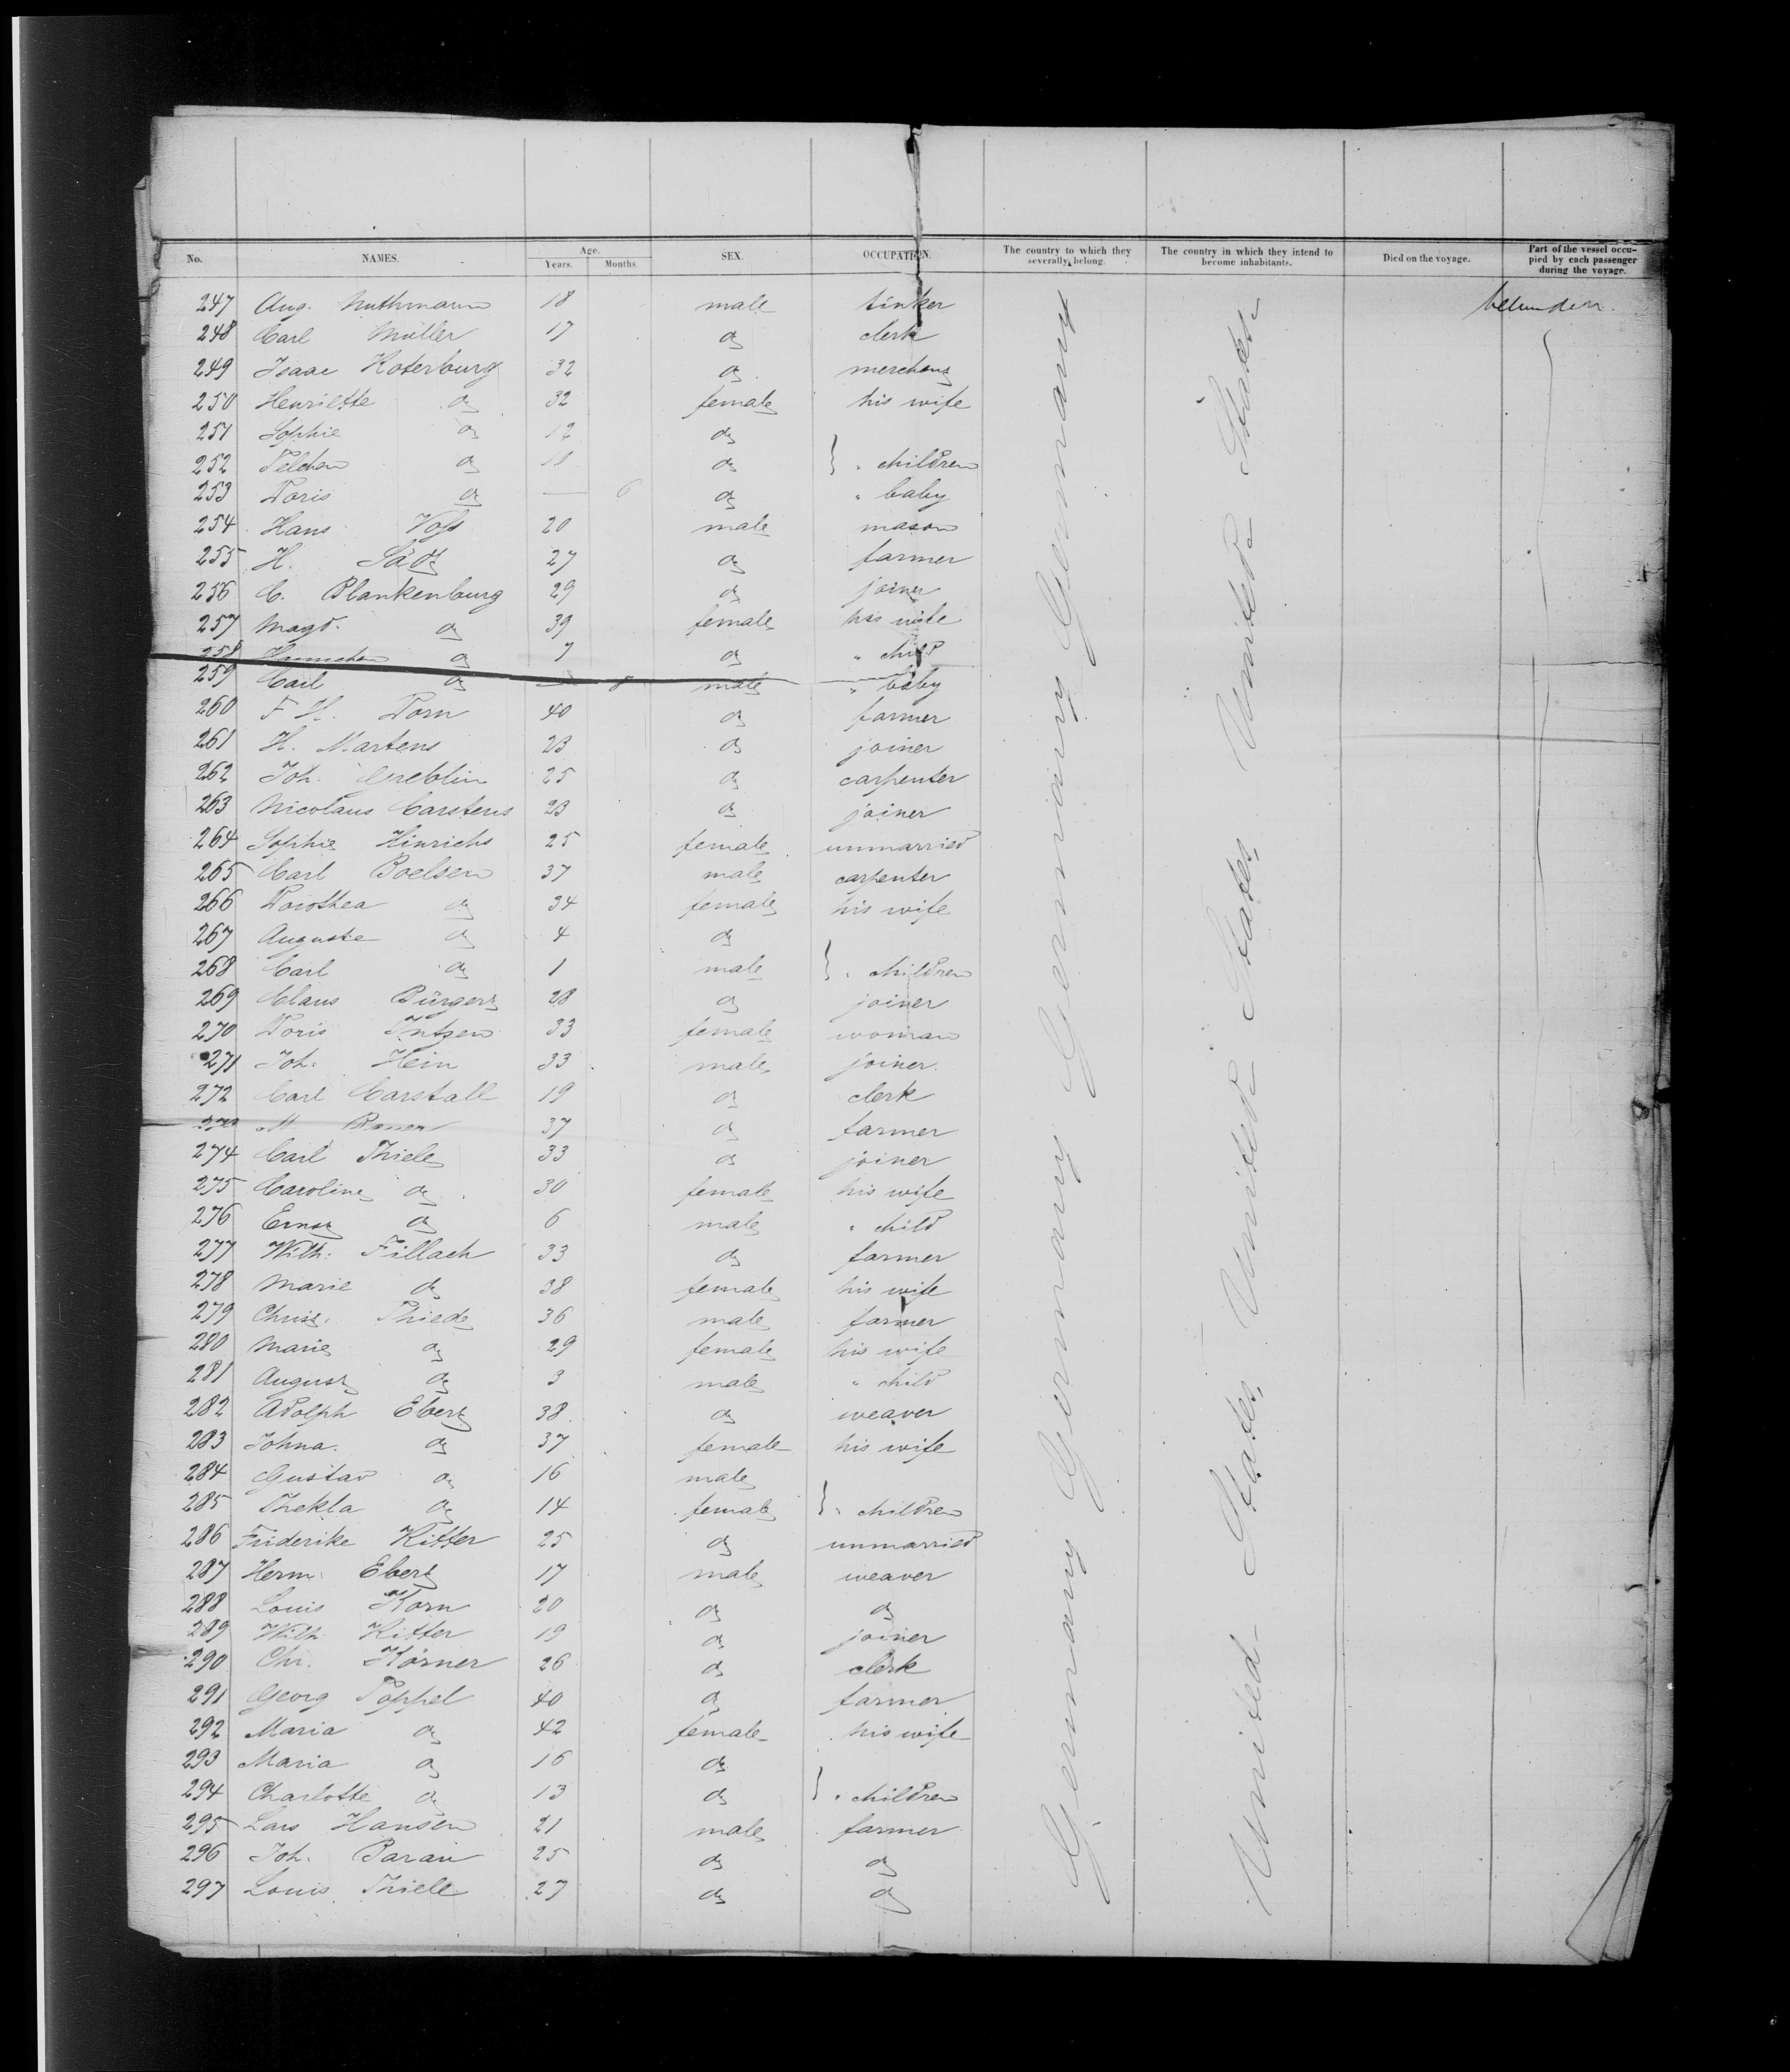 No. NAMES. Age. Years. Months. SEX. OCCUPATION. The country to which they severally belong. The country in which they intend to become inhabitants. Died on the voyage. Part of the vessel occupied by each passenger during the voyage.
247 Aug. Nuthmann 18 male tinker
248 Carl Müller 17 do clerk
249 Isaac Koterburg 32 do merchant
250 Henriette do 32 female his wife
251 Sophie do 12 do
252 do 11 do } " children
253 Doris do — 6 do " baby
254 Hans Voss 20 male mason
255 H. 27 do farmer
256 C. Blankenburg 29 do joiner
257 Magd. do 39 female his wife
258 do 7 do " child
259 Carl do — 8 male " baby
260 F H. Dorn 40 do farmer
261 H. Martens 23 do joiner
262 Joh. Greblin 25 do carpenter
263 Nicolaus Carstens 23 do joiner
264 Sophie Hinrichs 25 female unmarried
265 Carl Boelsen 37 male carpenter
266 Dorothea do 34 female his wife
267 Auguste do 4 do
268 Carl do 1 male } " children
269 Claus Bürgers 28 do joiner
270 Doris Intzen 33 female woman
271 Joh. Hein 33 male joiner.
272 Carl Carstall 19 do clerk
273 M 37 do farmer
274 Carl Thiele 33 do joiner
275 Caroline do 30 female his wife
276 Ernst do 6 male " child
277 Wilh. Fillach 33 do farmer
278 Marie do 38 female his wife
279 Christ. Thiede 36 male farmer
280 Marie do 29 female his wife
281 August do 3 male " child
282 Adolph Ebert 38 do weaver
283 Johna. do 37 female his wife
284 Gustav do 16 male
285 Thekla do 14 female } " children
286 Friderike Ritter 25 do unmarried
287 Herm. Ebert 17 male weaver
288 Louis Korn 20 do do
289 Wilh. Ritter 19 do joiner
290 Chr. Körner 26 do clerk
291 Georg Poppel 40 do farmer
292 Maria do 42 female his wife
293 Maria do 16 do
294 Charlotte do 13 do } " children
295 Lars Hansen 21 male farmer
296 Joh. Baran 25 do do
297 Louis Thiele 27 do do
Germany Germany Germany Germany Germany
United States United States United States